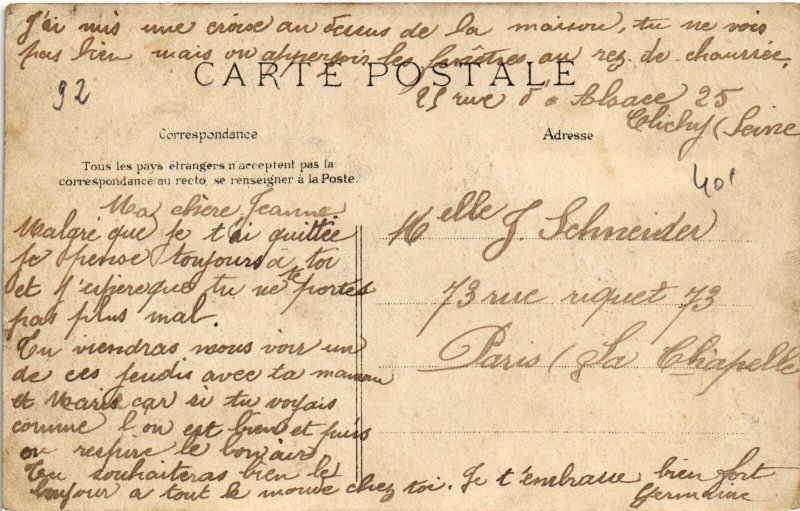 J'ai mis une croix au dessus de la maison, tu ne vois
pas bien mais on apperçois les fenêtres au rez de chaussée,
CARTE POSTALE
92
25 rue d'Alsace 25
Clichy (Seine
Correspondance
Adresse
Tous les pays étrangers n'acceptent pas la
correspondance au recto, se renseigner à la Poste.
40'
Ma chère Jeanne
Malgré que je t'ai quittée
je pense toujours a toi
et j'espère que tu ne te portes
pas plus mal.
Tu viendras nous voir un
de ces jeudis avec ta maman
et Marie car si tu voyais
comme l'on est bien et puis
on respire le bon air
Tu souhaiteras bien le
bonjour a tout le monde chez toi. Je t'embrasse bien fort
Germaine
Melle J. Schneider
73 rue riquet 73
Paris (La Chapelle